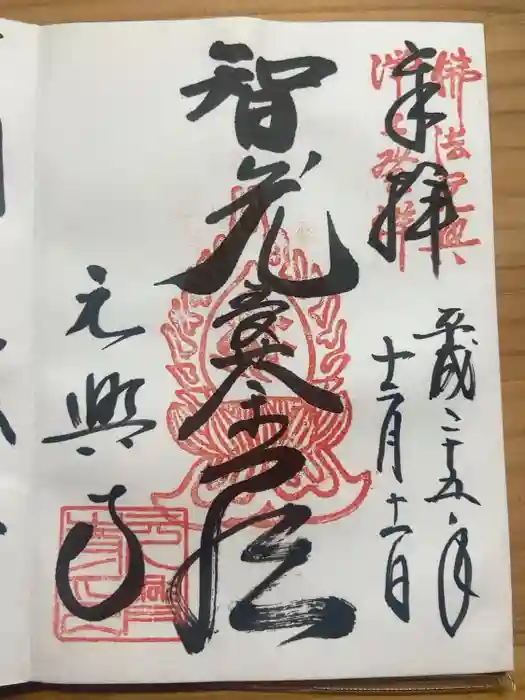 佛法元興
浄土發祥
奉拝
平成二十五年
十一月十一日
智光曼荼羅
元興寺